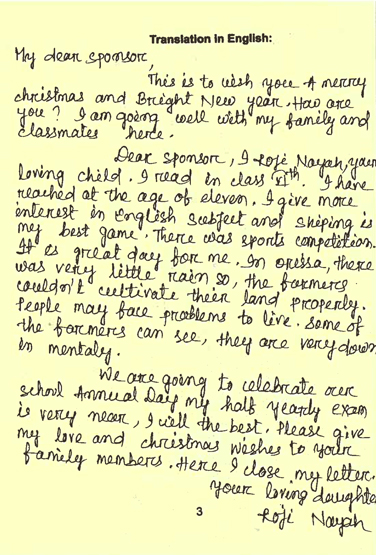 Translation in English:
My dear sponsor,
This is to wish you A merry
christmas and Bright New year. How are
you? I am going well with my family and
classmates here.
Dear sponsor, I Roji Nayak, your
loving child. I read in class VIth. I have
reached at the age of eleven. I give more
interest in English subject and skiping is
my best game. There was sports competition.
It is great day for me. In Orissa, there
was very little rain so, the farmers
couldn't cultivate their land properly.
People may face problems to live. Some of
the farmers can see, they are very down
in mentaly.
We are going to celebrate our
school Annual Day my half yearly exam
is very near, I will the best. Please give
my love and christmas wishes to your
family members. Here I close my letter.
your loving daughter
Roji Nayak
3